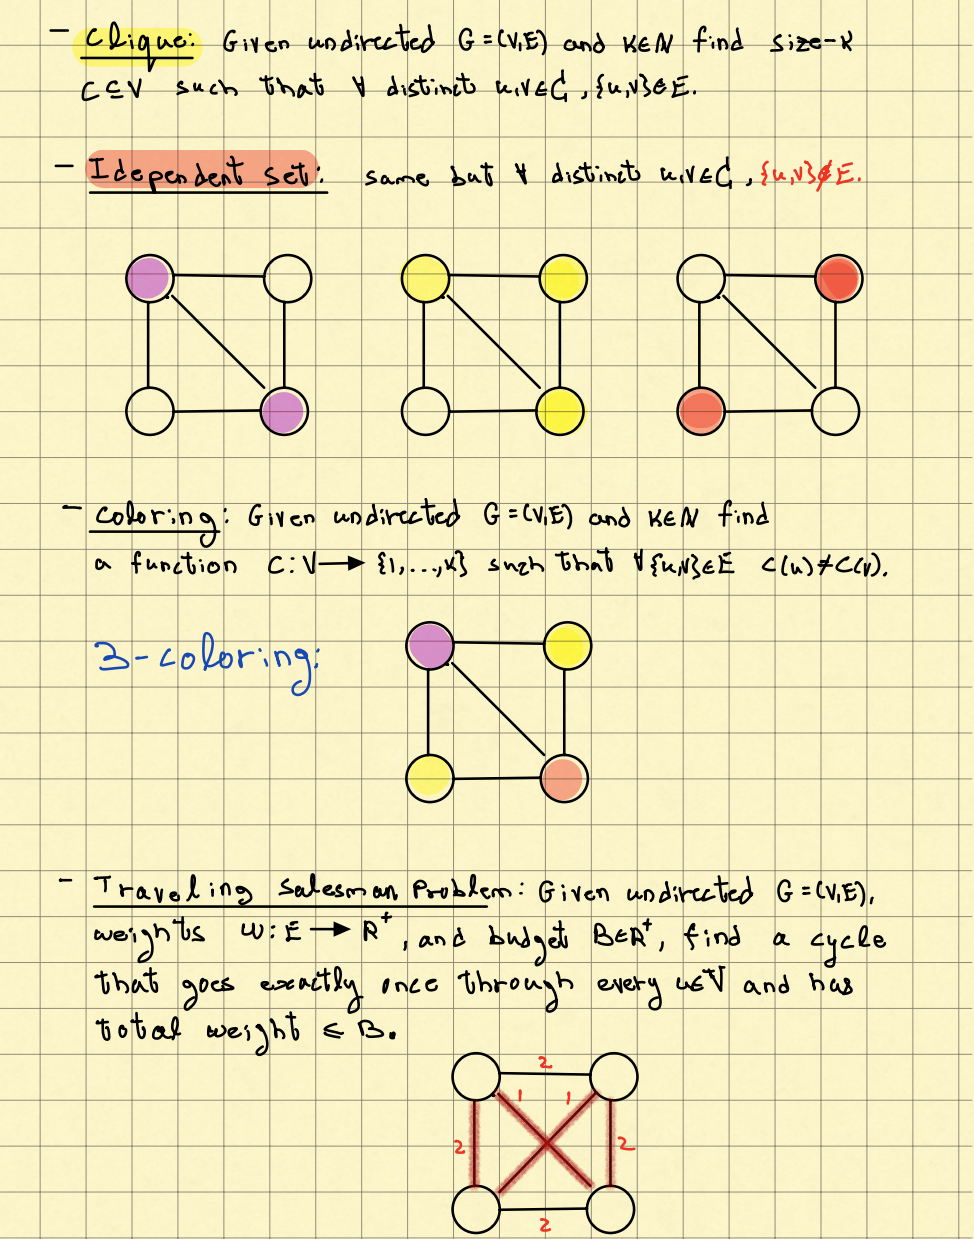 - Clique: Given undirected G=(V,E) and K∈N find size-K
C⊆V such that ∀ distinct u,v∈C, {u,v}∈E.
- Idependent set: same but ∀ distinct u,v∈C, {u,v}∉E.
- Coloring: Given undirected G=(V,E) and K∈N find
a function C:V→{1,...,K} such that ∀{u,v}∈E C(u)≠C(v).
3-coloring:
- Traveling Salesman Problem: Given undirected G=(V,E),
weights W:E→R⁺, and budget B∈R⁺, find a cycle
that goes exactly once through every u∈V and has
total weight ≤ B.
2
1 1
2 2
2